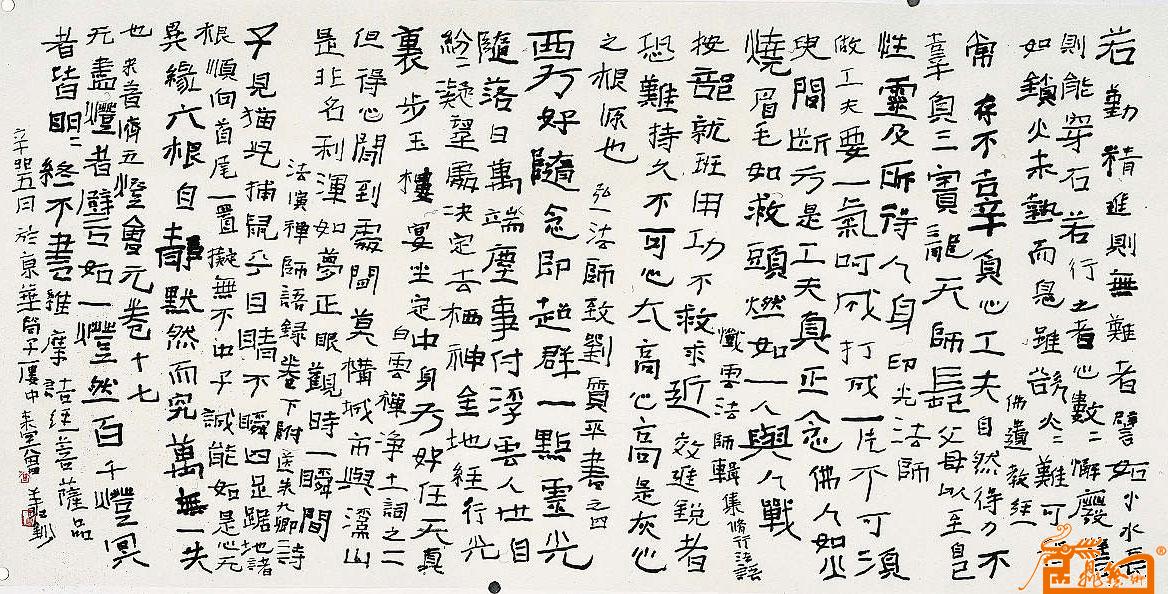 若勤精進則無難者譬如小水長
則能穿石若行者心數二懈廢譬
如鑽火未熱而息雖欲火二難可
佛遺教經
常存不辜負心工夫自然得力不
辜負三寶龍天師長父母以至自己
性靈及所得人身印光法師
做工夫要一氣呵成打成一片不可須
臾間斷方是工夫真正念佛人如
燒眉毛如救頭燃如一人與人戰
懺雲法師輯集修行法語
按部就班用功不求近效進銳者
恐難持久不可心太高心高是灰心
之根源也弘一法師致劉質平書之四
西方好隨念即超群一點靈光
隨落日萬端塵事付浮雲人世自
紛二凝望處決定去栖神金地經行光
裏步玉樓宴坐定中身方好任天真
白雲禪淨土詞之二
但得心閒到處閒莫構城市與溪山
是非名利渾如夢正眼觀時一瞬間
法演禪師語錄卷下附送朱九卿二詩
子見猫兒捕鼠乎目睛不瞬四足踞地諸
根順向首尾一置擬無不中子誠能如是心无
異緣六根自靜默然而究萬無一失
也 五燈會元卷十七
无盡燈者譬言如一燈然百千燈冥
者皆明二終不盡維摩詰經菩薩品